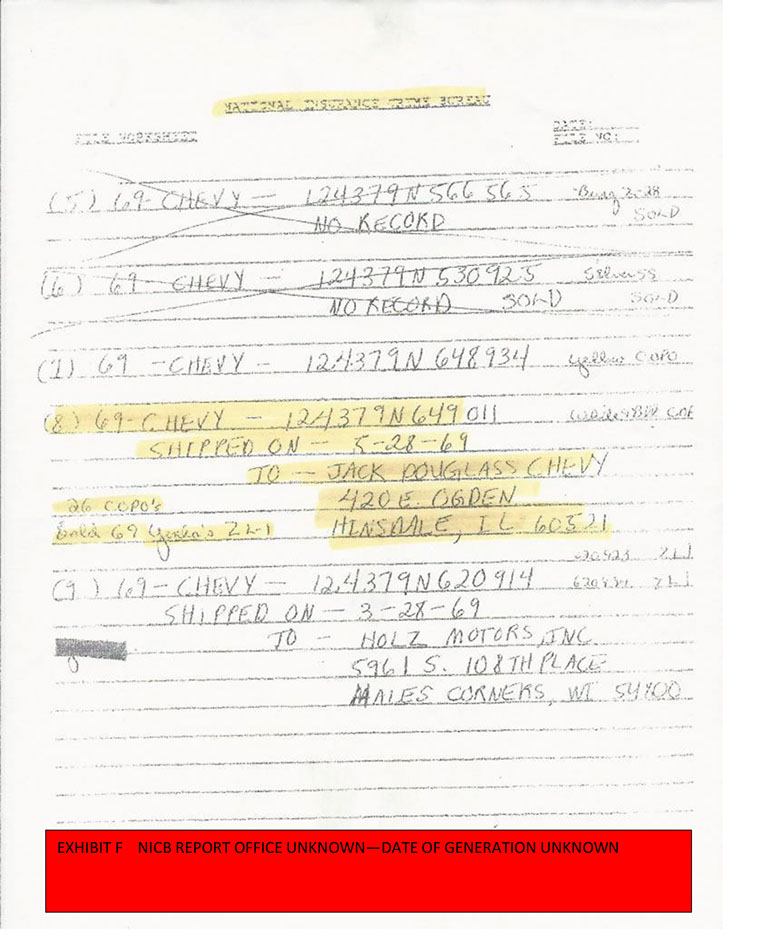 NATIONAL INSURANCE CRIME BUREAU
FILE WORKSHEET
DATE:
FILE NO:
(5) 69-CHEVY — 124379N566565
Z-28
NO RECORD
SOLD
(6) 69 - CHEVY — 124379N530925
NO RECORD SOLD SOLD
69 - CHEVY - 124379N648934 yellow COPO
(8) 69-CHEVY — 124379N649011
SHIPPED ON — 5-28-69
TO — JACK DOUGLASS CHEVY
26 COPO's 420 E. OGDEN
69 ZL-1 HINSDALE, IL 60521
ZL1
(9) 69-CHEVY — 124379N620914 ZL1
SHIPPED ON — 3-28-69
TO — HOLZ MOTORS, INC.
5961 S. 108TH PLACE
CORNERS, WI
EXHIBIT F NICB REPORT OFFICE UNKNOWN—DATE OF GENERATION UNKNOWN